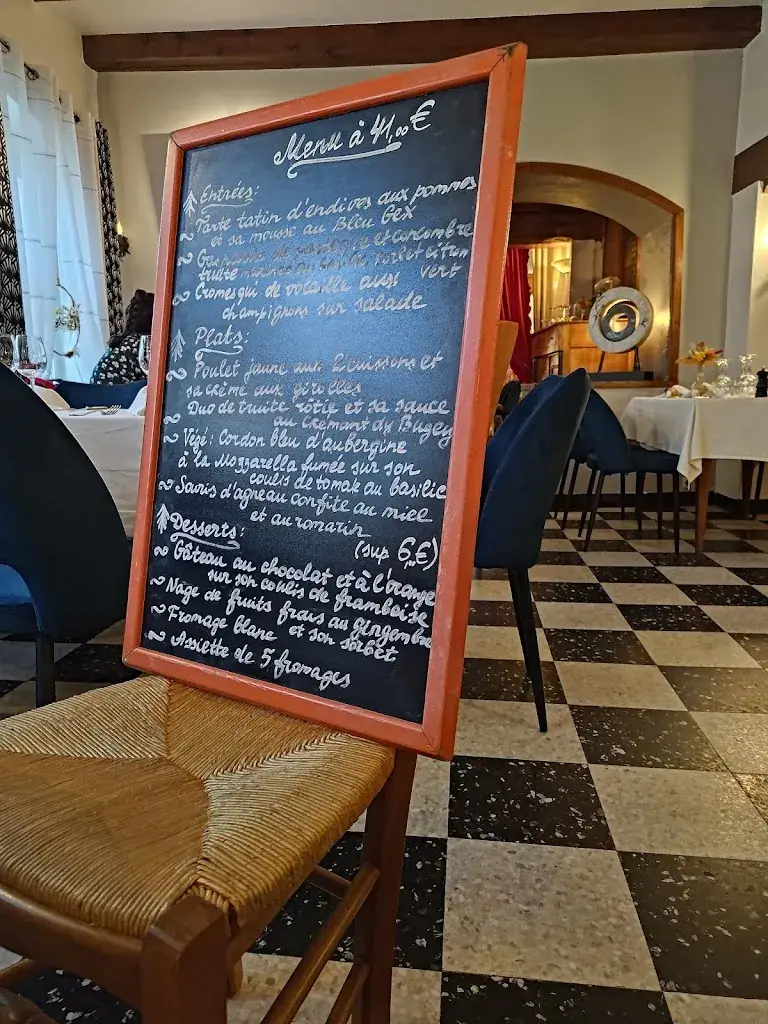 Menu à 41,00 €
Entrées:
~ Tarte tatin d'endives aux pommes
et sa mousse au Bleu Gex
~ et concombre
truite sorbet citron
vert
~ Cromesqui de volaille aux
champignons sur salade
Plats:
~ Poulet jaune aux 2 cuissons et
sa crème aux girolles
~ Duo de truite rôtie et sa sauce
au Crémant du Bugey
~ Végé: Cordon bleu d'aubergine
à la Mozzarella fumée sur son
coulis de tomate au basilic
~ Souris d'agneau confite au miel
et au romarin
(sup 6,00€)
Desserts:
~ Gâteau au chocolat et à l'orange
sur son coulis de framboise
~ Nage de fruits frais au gingembre
et son sorbet
~ Fromage blanc
~ Assiette de 5 fromages